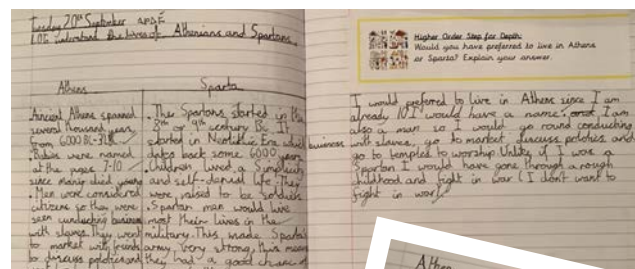 Tuesday 20th September
LOI: understand the lives of Athenians and Spartans.
Athens
Ancient Athens spanned
several thousand years
from 6000 BC-31BC
Babies were named
at the ages 7-10
since many died young
Men were considered
citizens so they were
seen conducting business
with slaves. They went
to market with friends
to discuss politics and
Sparta
The Spartans started in the
8th or 9th century BC. It
started in Neolithic Era which
dates back some 6000 years
Children lived a Simplicity
and self-denial life. They
were raised to be soldiers.
Spartan men would live
most their lives in the
military. This made Sparta's
army very strong, this means
they had a good chance of
Higher Order Step for Depth:
Would you have preferred to live in Athens
or Sparta? Explain your answer.
I would preferred to live in Athens since I am
already 10 I would have a name. I am
also a man so I would go round conducting
business with slaves, go to market discuss polotics, and
go to temples to worship. Unlike if I was a
Spartan I would have gone through a rough
childhood and fight in war (I don't want to
fight in war)
Athen